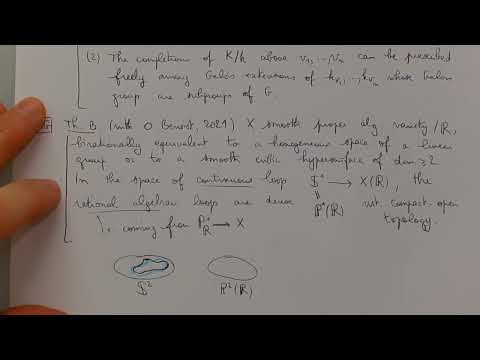 (2) The completions of K/k above v₁,...,vₙ can be prescribed
freely among Galois extensions of k_v₁,...,k_vₙ whose Galois
group are subgroups of G.
Th. B (with O. Benoist, 2021) X smooth proper alg. variety /ℝ,
birationally equivalent to a homogeneous space of a linear
group or to a smooth cubic hypersurface of dim ≥ 2
In the space of continuous loop 𝕊¹ → X(ℝ), the
rational algebraic loops are dense ‖ P¹(ℝ) wrt. compact-open
topology.
i.e. coming from P¹_ℝ → X
𝕊² P²(ℝ)